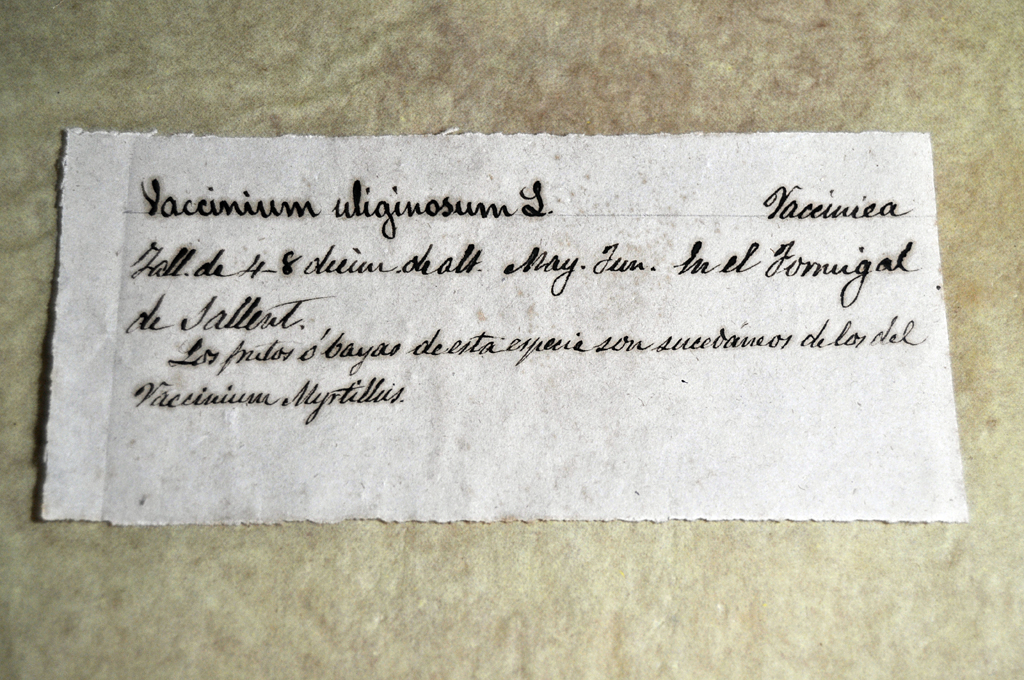 Vaccinium uliginosum L. Vacciniea
Tall. de 4-8 decím. de alt. May. Jun. En el Formigal
de Sallent.
Los frutos ó bayas de esta especie son sucedáneos de los del
Vaccinium Myrtillus.